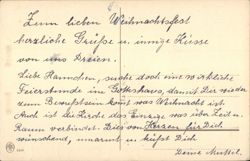 Zum lieben Weihnachtsfest
herzliche Grüße u. innige Küsse
von uns Dreien.
Liebe Hannchen, suche doch eine wirkliche
Feierstunde im Gotteshaus, damit Dir wieder
zum Bewußtsein kommt was Weihnacht ist.
Auch ist die Kirche das Einzige was über Zeit u.
Raum verbindet. Alles von Herzen für Dich
wünschend, umarmt u. küßt Dich
Deine